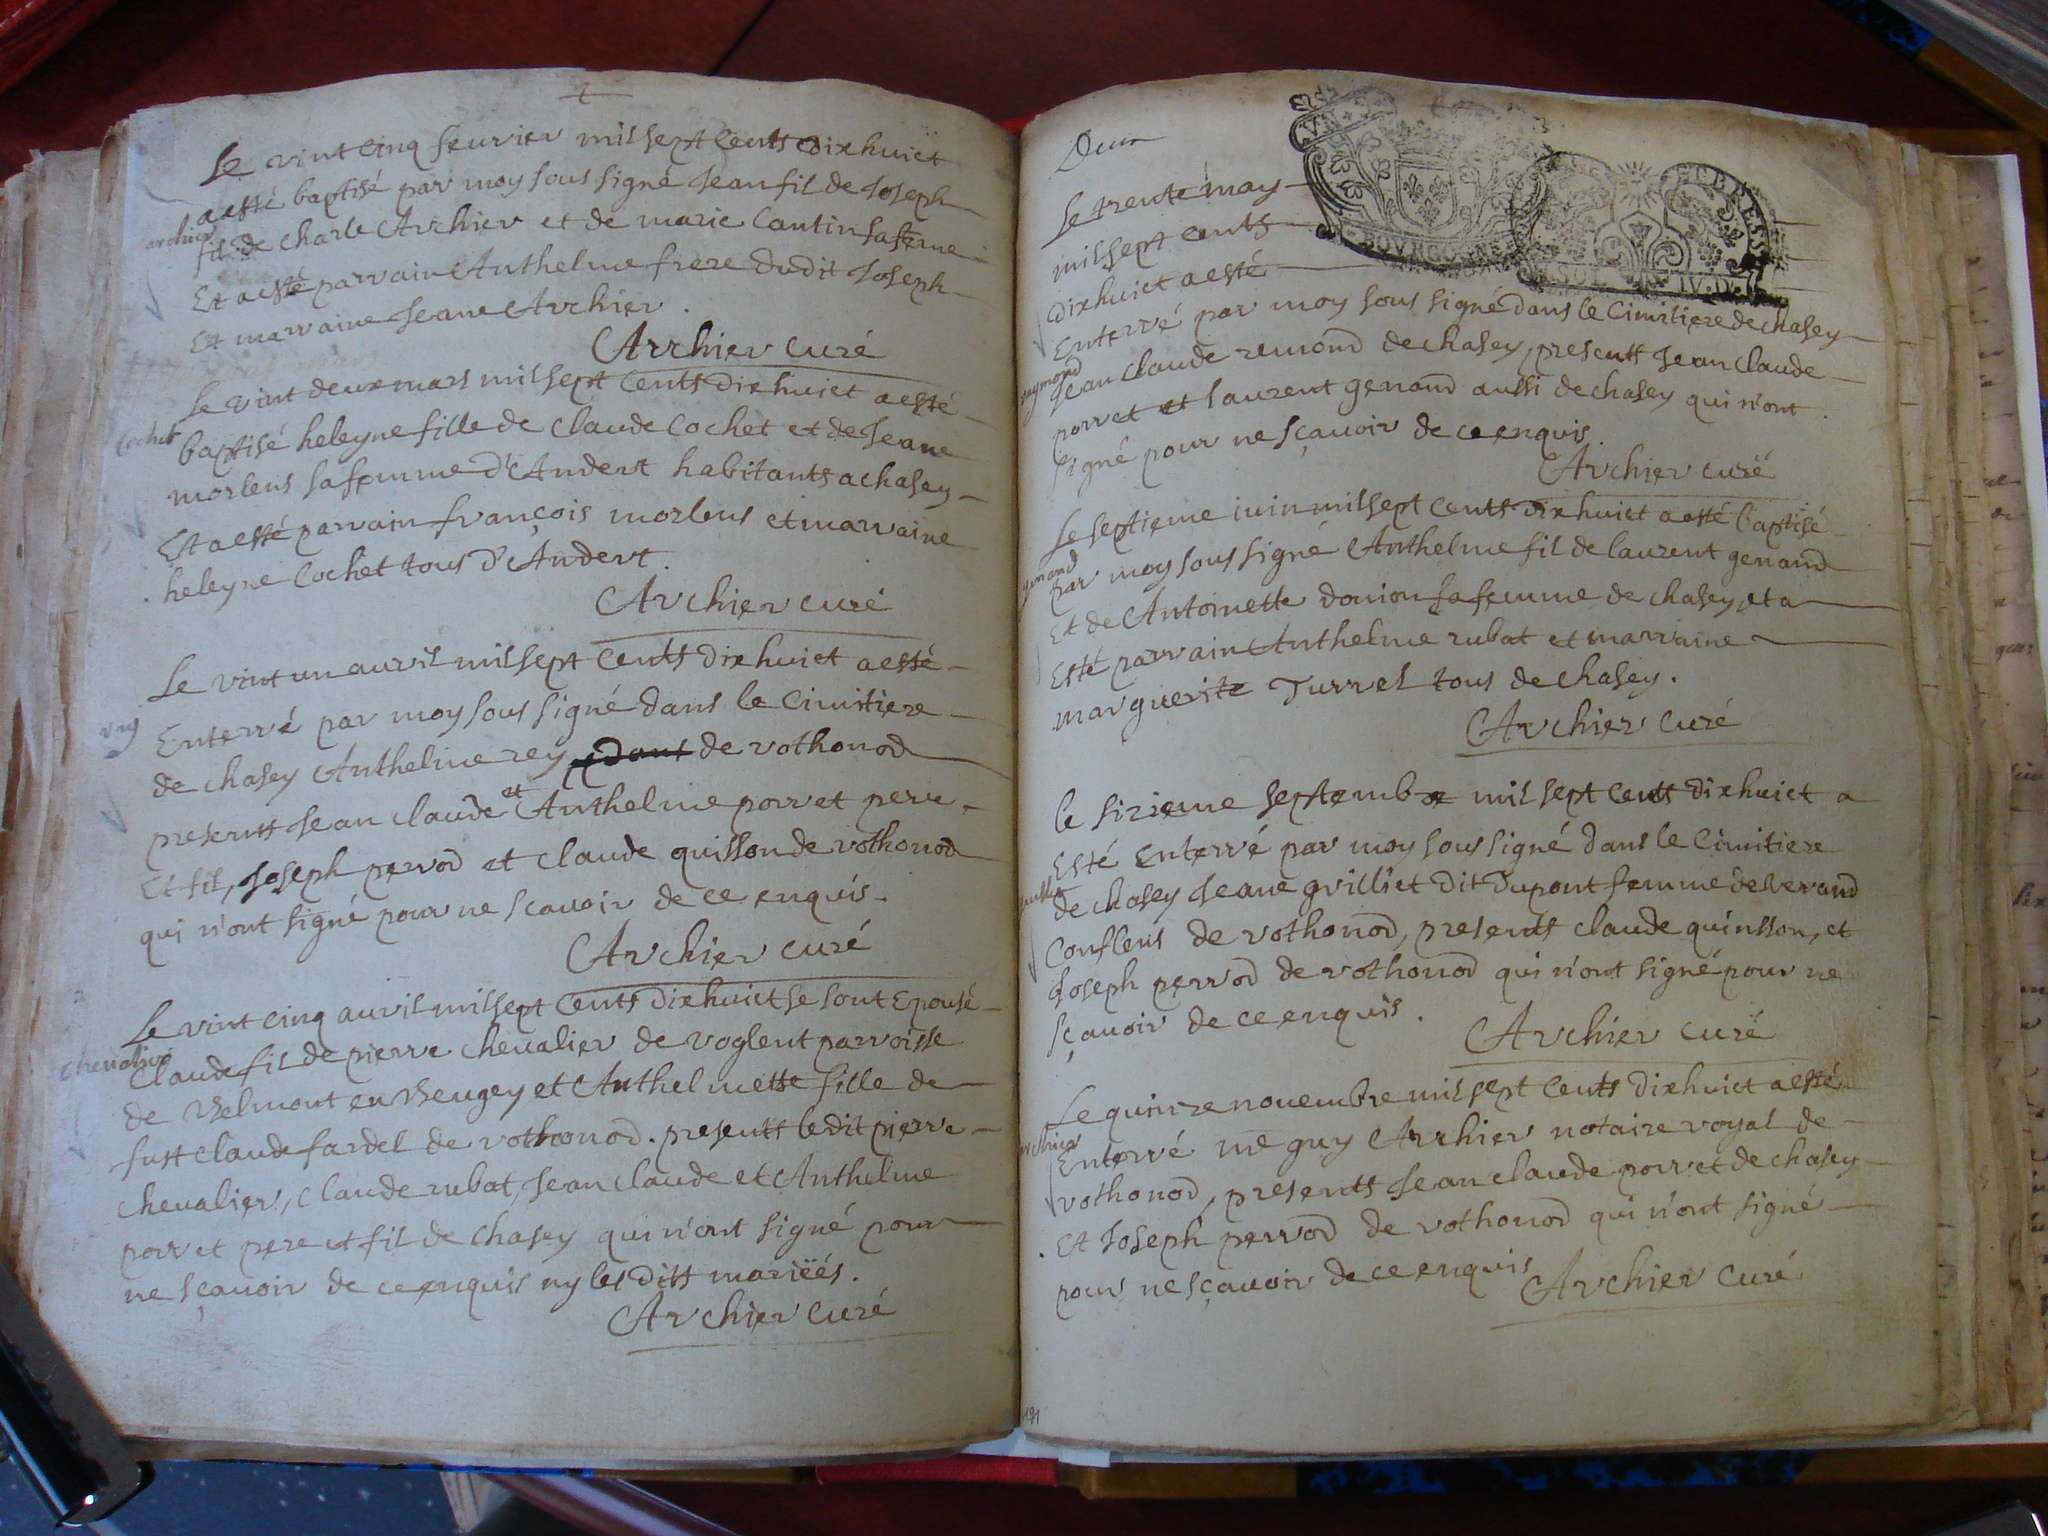 Le vint cinq feurier mil sept cents dixhuict
a esté baptisé par moy sous signé Jean fil de Joseph
archier
fil de Charle Archier et de marie Cantin sa feme
Et a esté parrain Anthelme frere dudit Joseph
Et marraine Jeane Archier.
Archier curé
Le vint deux mars mil sept cents dixhuict a esté
cochet
baptisé heleyne fille de Claude Cochet et de Jeane
morlens sa femme d'Andert habitants a chasey
Et a esté parrain françois morlens et marraine
heleyne Cochet tous d'Andert.
Archier curé
Le vint un auril mil sept cents dixhuict a esté
rey
Enterré par moy sous signé dans le Cimitiere
de chasey Anthelme rey de vothonod
presents Jean claude et Anthelme porret pere
Et fil, Joseph perrod et claude quisson de vothonod
qui n'ont signé pour ne scauoir de ce enquis.
Archier curé
Le vint cinq auril mil sept cents dixhuict se sont Epousé
chevalier
Claude fil de pierre chevalier de voglent parroisse
de Belmont en Beugey et Anthelmette fille de
fust claude fardel de vothonod. presents ledit pierre
chevalier, Claude rubat, Jean claude et Anthelme
porret pere et fil de chasey qui n'ont signé pour
ne sçauoir de ce enquis ny les ditt mariées.
Archier curé
Deux
BOVRGOGNE
ET BRESSE
SOL IV.D.
Le trente may
mil sept cents
dixhuict a esté
Enterré par moy sous signé dans le Cimitiere de chasey
raymond
Jean claude remond de chasey, presents Jean claude
porret et laurent genand aussi de chasey qui n'ont
signé pour ne sçauoir de ce enquis.
Archier curé
Le septieme iuin mil sept cents dixhuict a esté baptisé
genand
par moy sous signé Anthelme fil de laurent genand
Et de Antoinette donion sa femme de chasey, et a
Esté parrain Anthelme rubat et marraine
marguerite Turrel tous de chasey.
Archier curé
le sizieme septembre mil sept cents dixhuict a
Esté Enterré par moy sous signé dans le Cimitiere
de chasey Jeane grilliet dit Dupont femme de Verand
Conflens de vothonod, presents claude quinsson, et
Joseph perrod de vothonod qui n'ont signé pour ne
sçauoir de ce enquis.
Archier curé
Le quinze nouembre mil sept cents dixhuict a esté
archier
Enterré me guy Archier notaire royal de
vothonod, presents Jean claude porret de chasey
Et Joseph perrod de vothonod qui n'ont signé
pour ne sçauoir de ce enquis
Archier curé